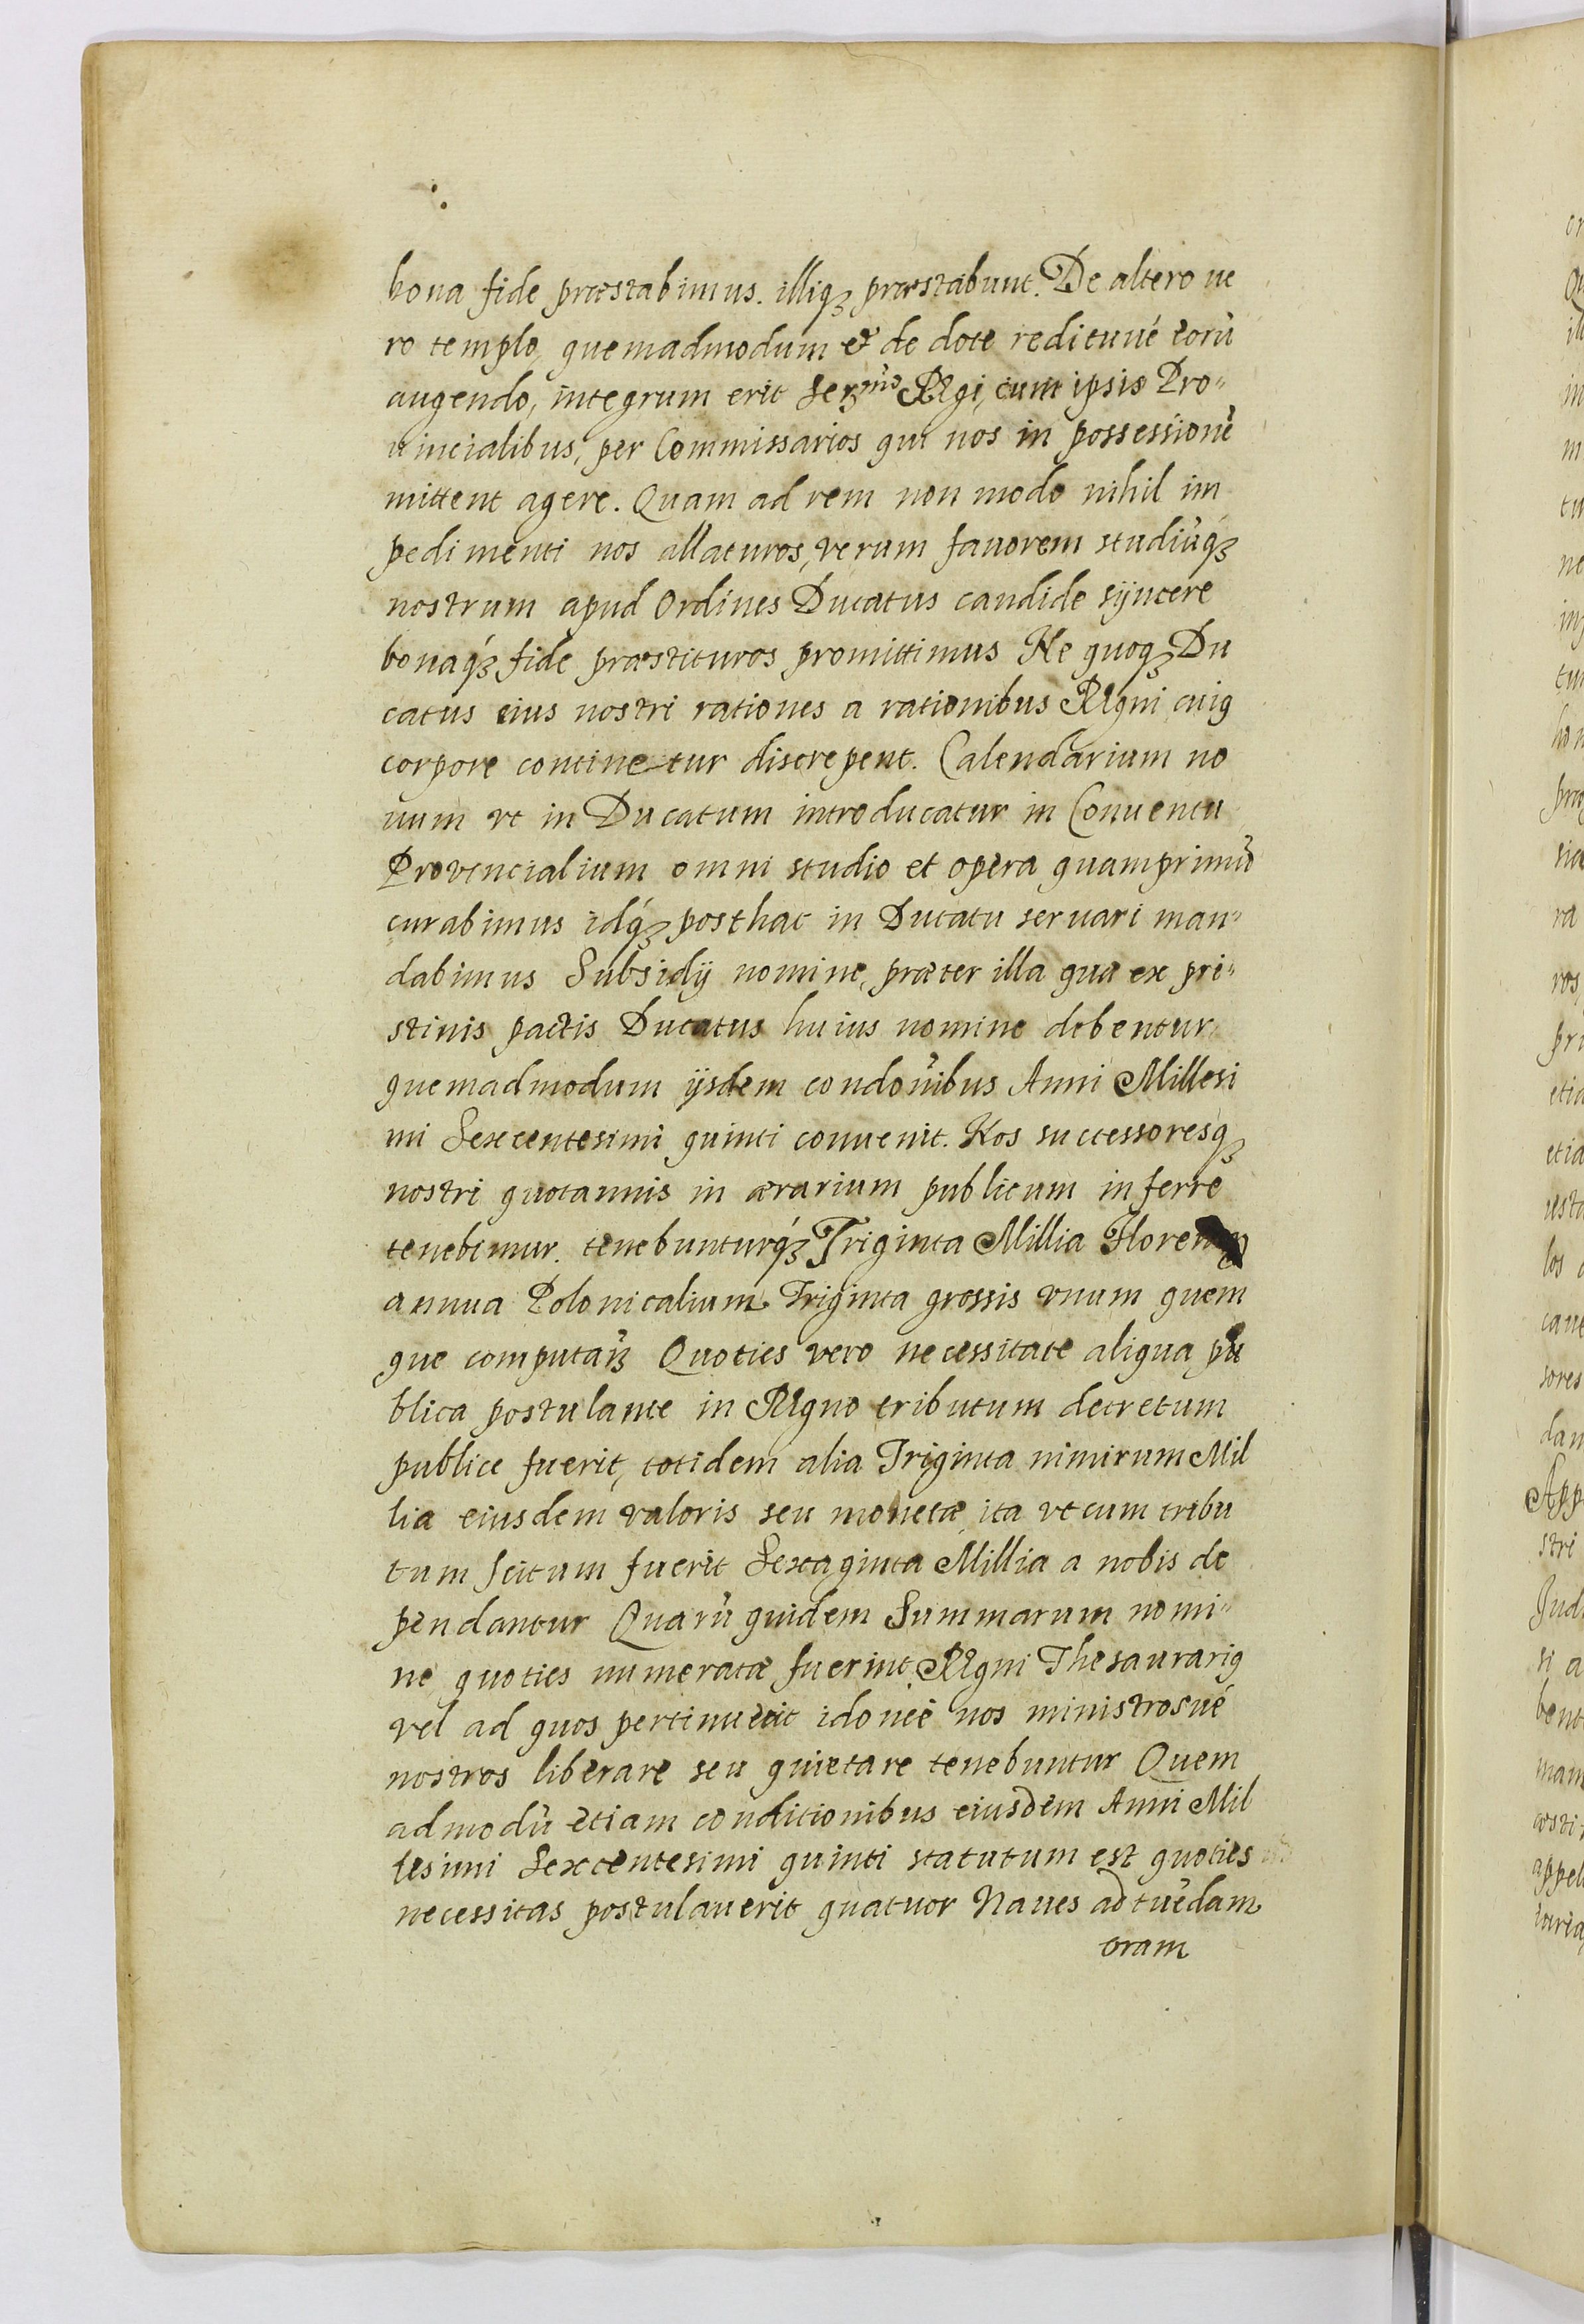 bona fide præstabimus. illiqꝫ præstabunt. De altero ve
ro templo, quemadmodum & de dote redituué eorū
augendo, integrum erit Serᵐᵒ Regi, cum ipsis Pro-
uincialibus, per Commissarios qui nos in possessionē
mittent agere. Quam ad rem non modo nihil im
pedimenti nos allaturos, verum fauorem studiūqꝫ
nostrum apud Ordines Ducatus candide syncere
bonaqꝫ fide præstituros promittimus Ne quoqꝫ Du
catus eius nostri rationes a rationibus Regni, cuiꝰ
corpore continetur discrepent. Calendarium no
uum vt in Ducatum introducatur in Conuentu
Provincialium omni studio et opera quamprimū
curabimus idqꝫ posthac in Ducatu seruari man-
dabimus Subsidij nomine, præter illa quæ ex pri-
stinis pactis Ducatus huius nomine debentur
quemadmodum ijsdem condōnibus Anni Millesi
mi Sexcentesimi quinti conuenit. Nos successoresqꝫ
nostri quotannis in ærarium publicum inferre
tenebimur. tenebunturqꝫ Triginta Millia
annua Polonicalium Triginta grossis vnum quem
que computañ Quoties vero necessitate aliqua pu
blica postulante in Regno tributum decretum
publice fuerit, totidem alia Triginta nimirum Mil
lia eiusdem valoris seu monetæ ita vt cum tribu
tum scitum fuerit Sexaginta Millia a nobis de
pendantur Quarū quidem Summarum nomi-
ne quoties numeratæ fuerint, Regni Thesaurariꝰ
vel ad quos pertinuerit idoneè nos ministrosué
nostros liberare seu quietare tenebuntur Quem
admodū etiam conditionibus eiusdem Anni Mil
lesimi Sexcentesimi quinti statutum est quoties
necessitas postulauerit quatuor Naues ad tuēdam
oram